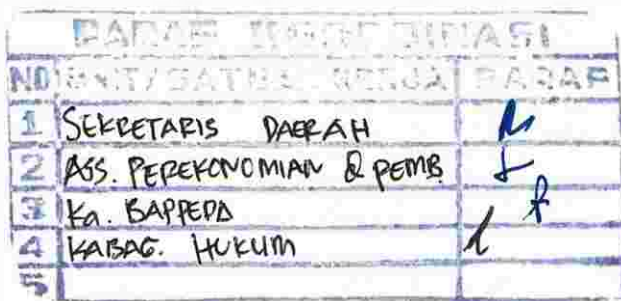 PARAF KOORDINASI
NO UNIT/SATUAN KERJA PARAF
1 SEKRETARIS DAERAH
2 ASS. PEREKONOMIAN & PEMB
3 Ka. BAPPEDA
4 KABAG. HUKUM
5